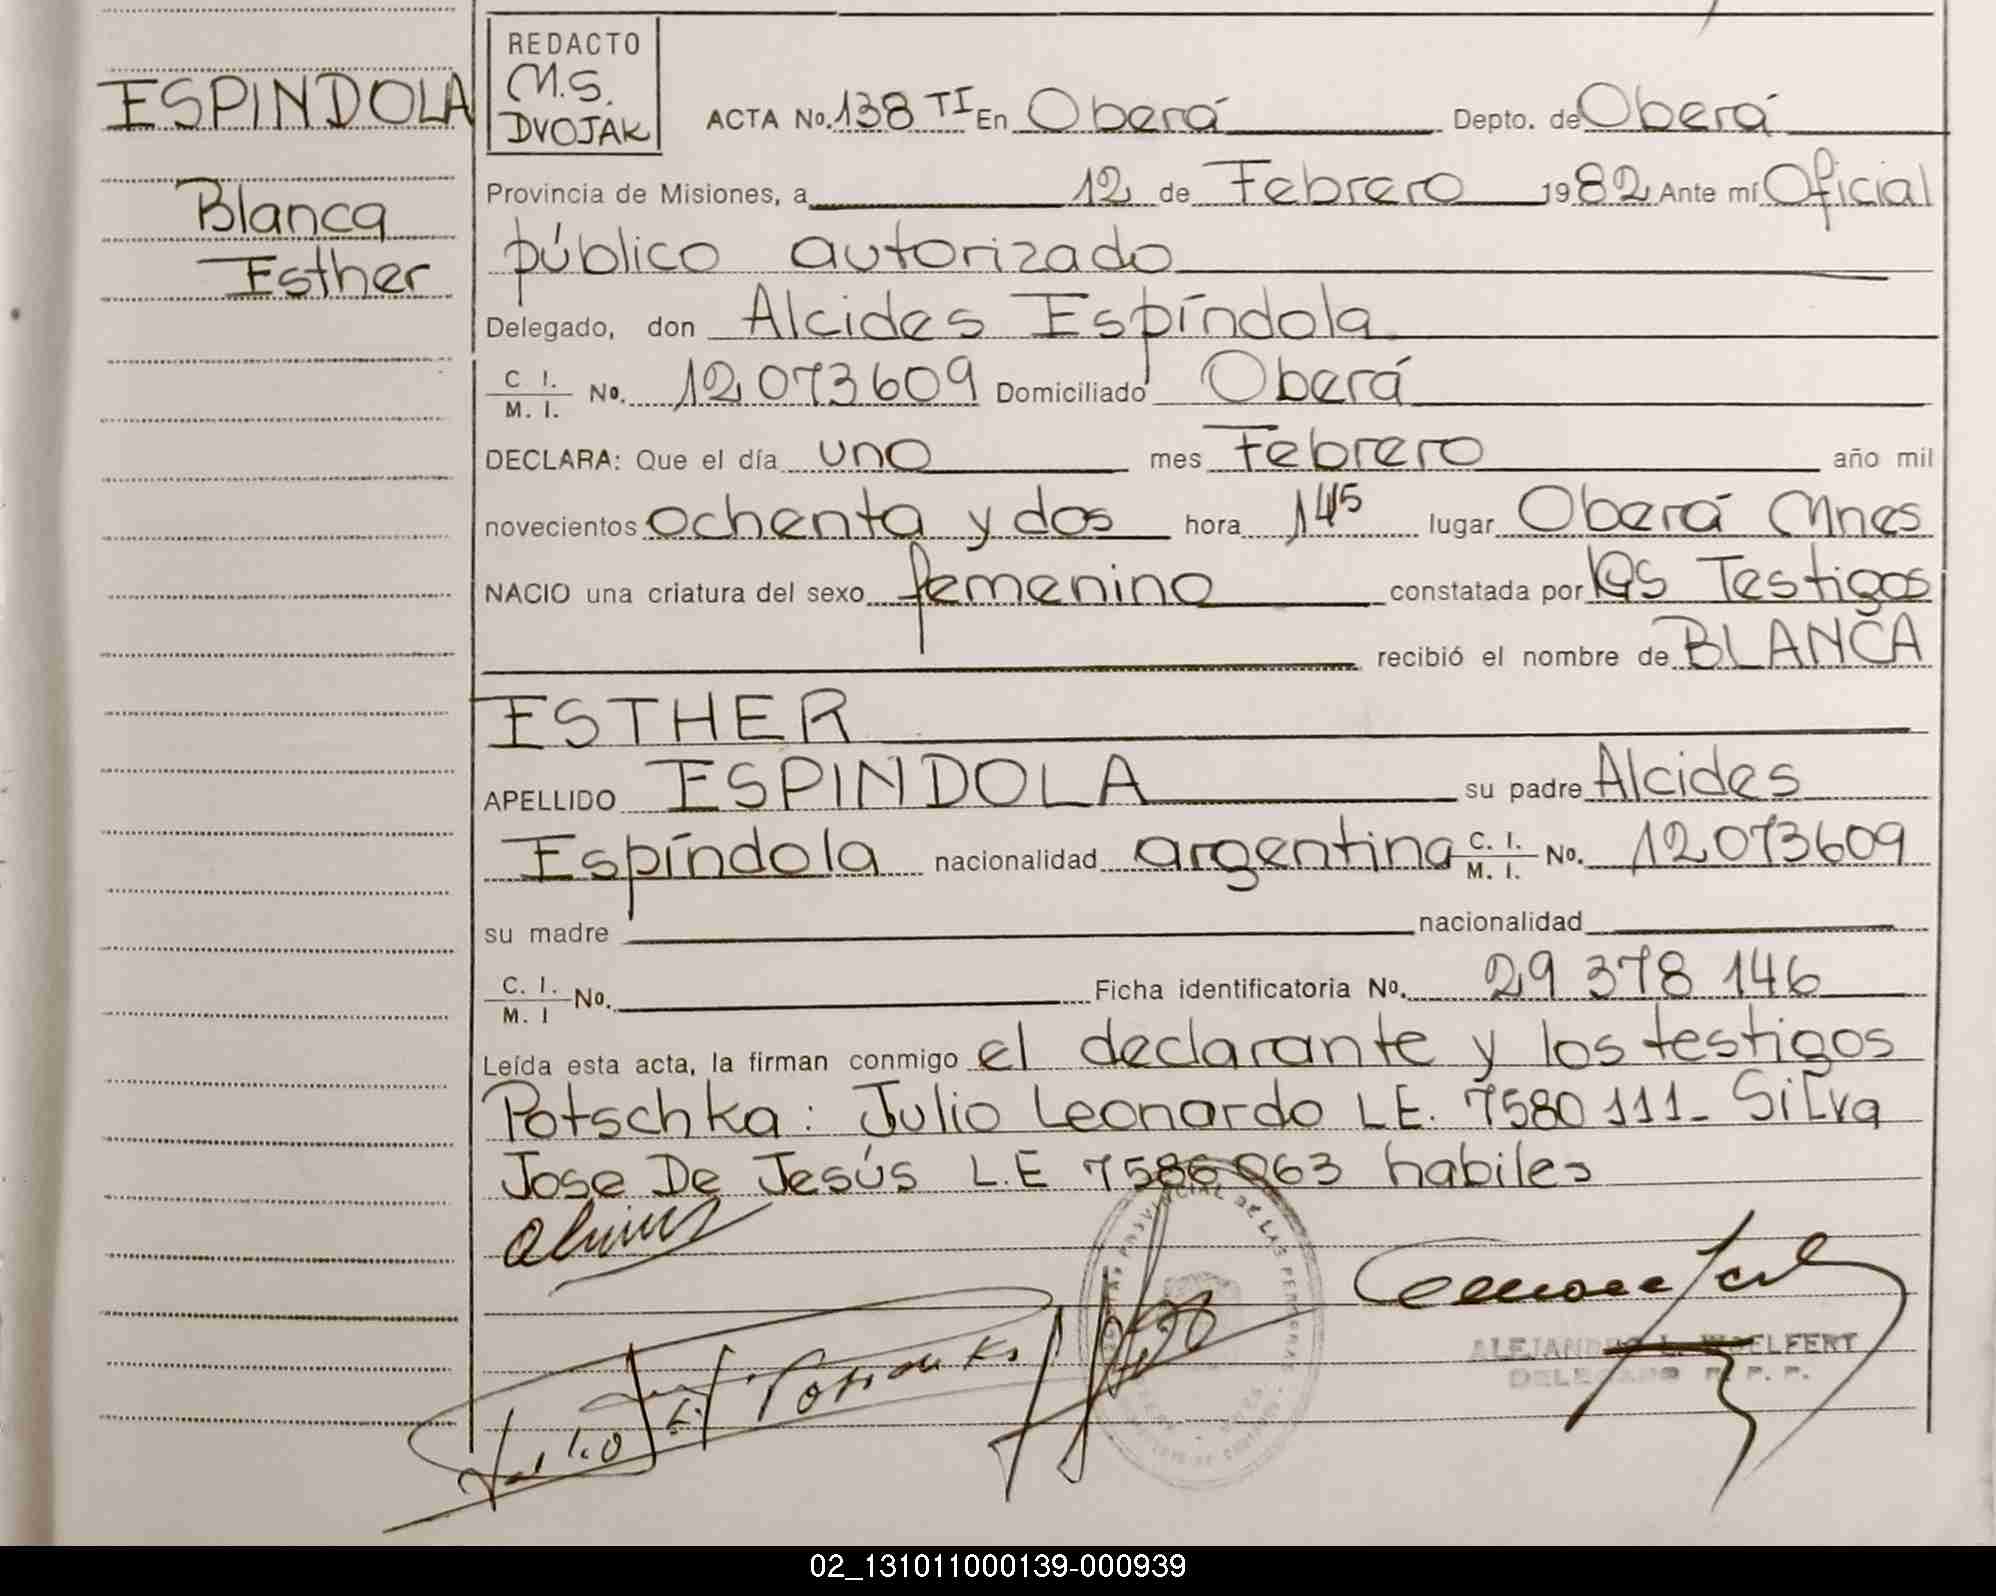 ESPINDOLA
Blanca
Esther
REDACTO
M.S.
DVOJAK
ACTA No. 138 TI En Oberá Depto. de Oberá
Provincia de Misiones, a 12 de Febrero 1982 Ante mí Oficial
público autorizado
Delegado, don Alcides Espíndola
C I. M. I. No. 12 073609 Domiciliado Oberá
DECLARA: Que el día uno mes Febrero año mil
novecientos ochenta y dos hora 1 45 lugar Oberá Mnes
NACIO una criatura del sexo femenino constatada por los Testigos
recibió el nombre de BLANCA
ESTHER
APELLIDO ESPINDOLA su padre Alcides
Espíndola nacionalidad argentina C. I. M. I. No. 12 073609
su madre nacionalidad
C. I. M. I No. Ficha identificatoria No. 29 378 146
Leída esta acta, la firman conmigo el declarante y los testigos
Potschka: Julio Leonardo LE. 7580 111- Silva
Jose De Jesús L.E 7586063 habiles
PROVINCIAL DE LAS PERSONAS
ALEJANDRO L. WOELFERT
DELEGADO R. P. P.
02_131011000139-000939